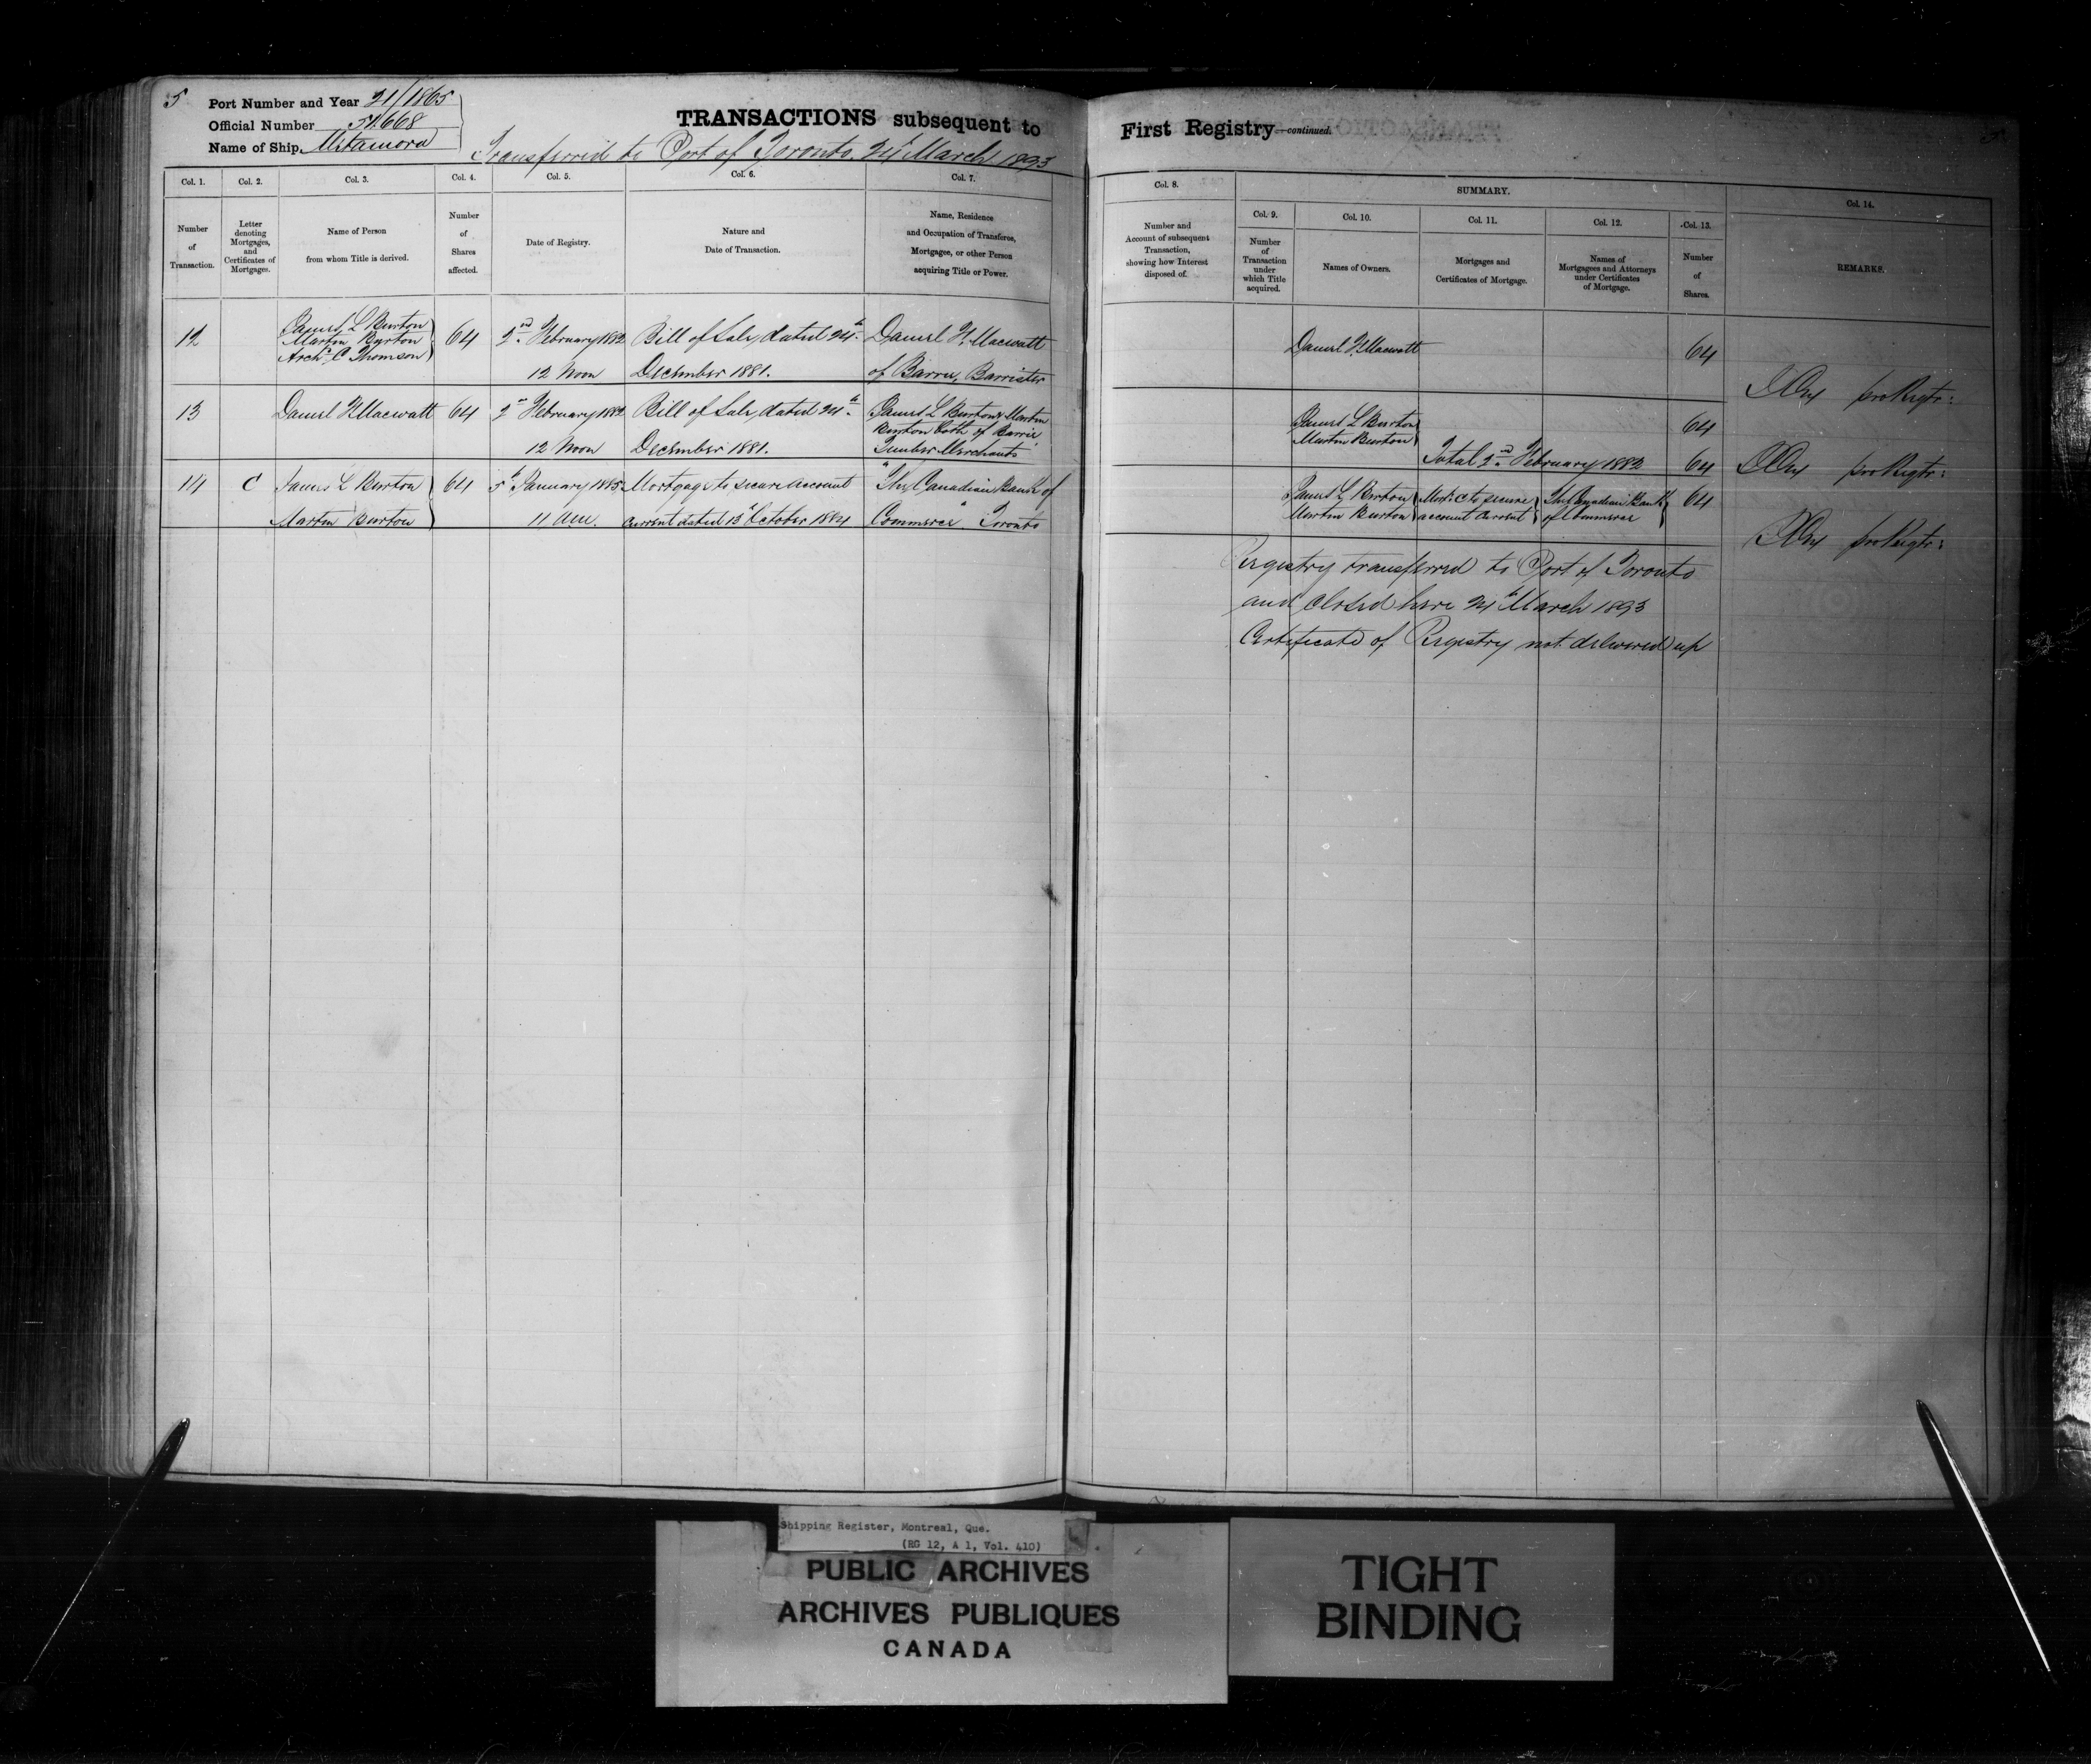 5
Port Number and Year 21/1865
Official Number
Name of Ship Metamora
TRANSACTIONS subsequent to
Transferred to Port of Toronto. 24 March 1893
First Registry—continued.
5
Col. 1.
Col. 2.
Col. 3.
Col. 4.
Col. 5.
Col. 6.
Col. 7.
Col. 8.
SUMMARY.
Col. 14.
Number
of
Transaction.
Letter
denoting
Mortgages,
and
Certificates of
Mortgages.
Name of Person
from whom Title is derived.
Number
of
Shares
affected.
Date of Registry.
Nature and
Date of Transaction.
Name, Residence
and Occupation of Transferee,
Mortgagee, or other Person
acquiring Title or Power.
Number and
Account of subsequent
Transaction,
showing how Interest
disposed of.
Col. 9.
Col. 10.
Col. 11.
Col. 12.
Col. 13.
Number
of
Transaction
under
which Title
acquired.
Names of Owners.
Mortgages and
Certificates of Mortgage.
Names of
Mortgagees and Attorneys
under Certificates
of Mortgage.
Number
of
Shares.
REMARKS.
12
James L Burton
Martin Burton
Archd C Thomson
64
2nd February 1882
12 Noon
Bill of Sale, dated 24th
December 1881.
Daniel F. Macwatt
of Barrie, Barrister
Daniel F. Macwatt
64
pro Regtr:
13
Daniel F. Macwatt
64
2nd February 1882
12 Noon
Bill of Sale, dated 24th
December 1881.
James L Burton & Martin
Burton both of Barrie,
Lumber Merchants
James L Burton
Martin Burton
64
Total 2nd February 1882 64
pro Regtr:
14
C
James L Burton
Martin Burton
64
5th January 1885
11 AM.
Mortgage to secure account
current dated 13th October 1884
"The Canadian Bank of
Commerce" Toronto
James L Burton
Martin Burton
Mort. C to secure
account current
The Canadian Bank
of Commerce
64
pro Regtr:
Registry transferred to Port of Toronto
and closed here 24th March 1893
Certificate of Registry not delivered up
Shipping Register, Montreal, Que.
(RG 12, A 1, Vol. 410)
PUBLIC ARCHIVES
ARCHIVES PUBLIQUES
CANADA
TIGHT
BINDING